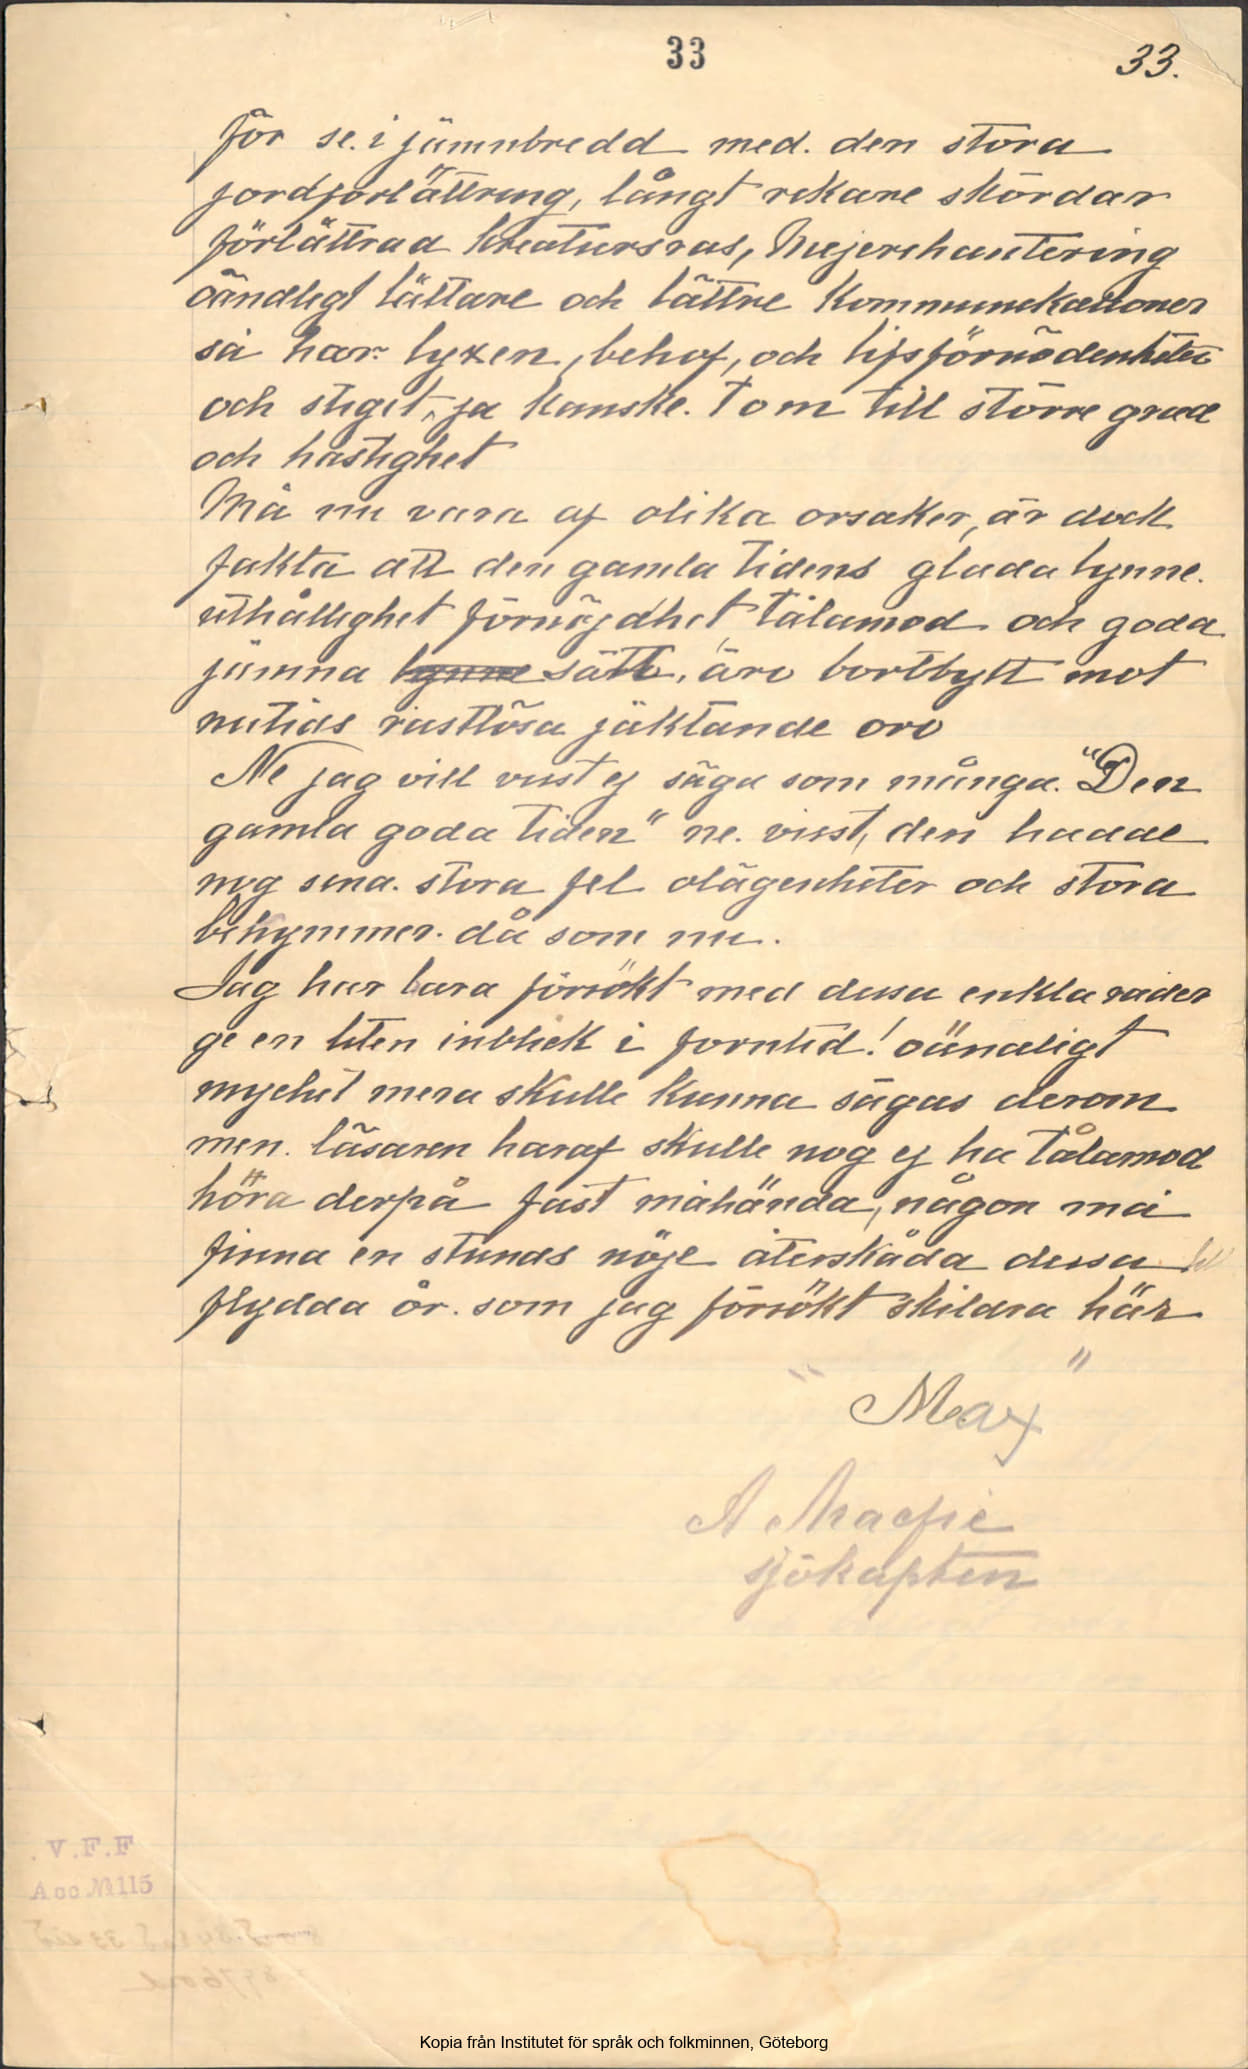 33
33.
för se. i jämnbredd med. den stora
jordförbättring, långt rikare skördar
förbättrad kreatursras, Mejerihantering
oändligt lättare och bättre Kommunikationer
så har lyxen, behof, och lifsförnödenheter
och stigit, ja kanske. tom till större grad
och hastighet
Må nu vara af olika orsaker, är dock
fakta att den gamla tidens glada lynne.
uthållighet förnöjdhet tålamod och goda
jämna lynne sätt, äro bortbytt mot
nutids rastlösa jäktande oro
Ne jag vill visst ej säga som många. "Den
gamla goda tiden" ne. visst, den hadde
nog sina. stora fel olägenheter och stora
bekymmer. då som nu.
Jag har bara försökt med dessa enkla rader
ge en liten inblick i forntid! oändligt
mychet mera skulle kunna sägas derom
men. läsaren haraf skulle nog ej ha tålamod
höra derpå fast måhända, någon må
finna en stunds nöje återskåda dessa
flydda år. som jag försökt skildra här
"May"
A Macfie
sjökapten
V.F.F
Acc № 115
Kopia från Institutet för språk och folkminnen, Göteborg